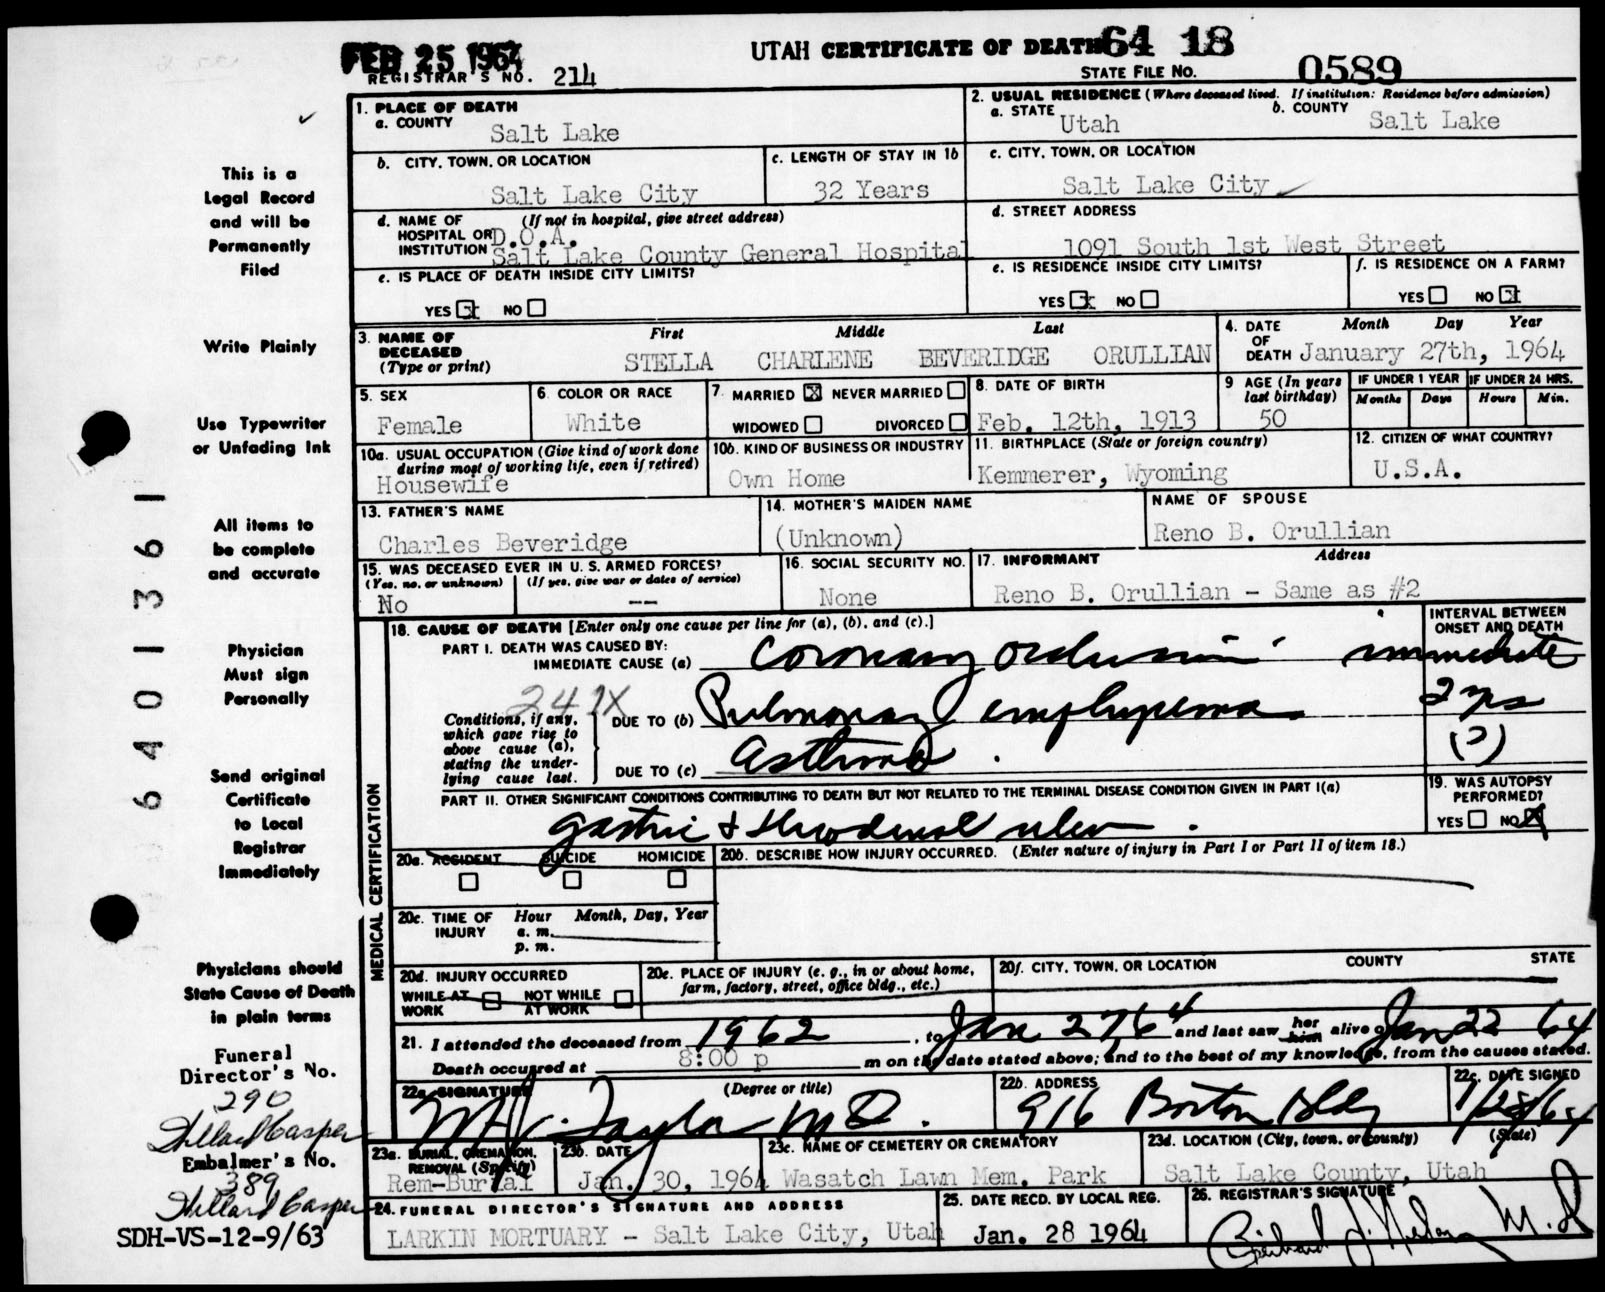 FEB 25 1964
UTAH CERTIFICATE OF DEATH 64 18
REGISTRAR'S NO. 214
STATE FILE NO. 0589
1. PLACE OF DEATH
a. COUNTY
Salt Lake
2. USUAL RESIDENCE (Where deceased lived. If institution: Residence before admission)
a. STATE Utah
b. COUNTY Salt Lake
b. CITY, TOWN, OR LOCATION
Salt Lake City
c. LENGTH OF STAY IN 1b
32 Years
c. CITY, TOWN, OR LOCATION
Salt Lake City
d. NAME OF (If not in hospital, give street address)
HOSPITAL OR D.O.A.
INSTITUTION Salt Lake County General Hospital
d. STREET ADDRESS
1091 South 1st West Street
e. IS PLACE OF DEATH INSIDE CITY LIMITS?
YES x NO
e. IS RESIDENCE INSIDE CITY LIMITS?
YES x NO
f. IS RESIDENCE ON A FARM?
YES NO x
3. NAME OF DECEASED
(Type or print)
First Middle Last
STELLA CHARLENE BEVERIDGE ORULLIAN
4. DATE OF DEATH
Month Day Year
January 27th, 1964
5. SEX
Female
6. COLOR OR RACE
White
7. MARRIED x NEVER MARRIED
WIDOWED DIVORCED
8. DATE OF BIRTH
Feb. 12th, 1913
9 AGE (In years
last birthday)
50
IF UNDER 1 YEAR
Months Days
IF UNDER 24 HRS.
Hours Min.
10a. USUAL OCCUPATION (Give kind of work done
during most of working life, even if retired)
Housewife
10b. KIND OF BUSINESS OR INDUSTRY
Own Home
11. BIRTHPLACE (State or foreign country)
Kemmerer, Wyoming
12. CITIZEN OF WHAT COUNTRY?
U.S.A.
13. FATHER'S NAME
Charles Beveridge
14. MOTHER'S MAIDEN NAME
(Unknown)
NAME OF SPOUSE
Reno B. Orullian
15. WAS DECEASED EVER IN U. S. ARMED FORCES?
(Yes, no, or unknown) (If yes, give war or dates of service)
No --
16. SOCIAL SECURITY NO.
None
17. INFORMANT Address
Reno B. Orullian - Same as #2
MEDICAL CERTIFICATION
18. CAUSE OF DEATH [Enter only one cause per line for (a), (b), and (c).]
INTERVAL BETWEEN
ONSET AND DEATH
PART I. DEATH WAS CAUSED BY:
IMMEDIATE CAUSE (a) Coronary occlusion immediate
241X
Conditions, if any,
which gave rise to
above cause (a),
stating the under-
lying cause last.
DUE TO (b) Pulmonary emphysema 2 yrs
DUE TO (c) Asthma. (?)
PART II. OTHER SIGNIFICANT CONDITIONS CONTRIBUTING TO DEATH BUT NOT RELATED TO THE TERMINAL DISEASE CONDITION GIVEN IN PART I(a)
gastric & duodenal ulcer.
19. WAS AUTOPSY
PERFORMED?
YES NO X
20a. ACCIDENT SUICIDE HOMICIDE
20b. DESCRIBE HOW INJURY OCCURRED. (Enter nature of injury in Part I or Part II of item 18.)
20c. TIME OF INJURY
Hour Month, Day, Year
a. m.
p. m.
20d. INJURY OCCURRED
WHILE AT WORK NOT WHILE AT WORK
20e. PLACE OF INJURY (e. g., in or about home,
farm, factory, street, office bldg., etc.)
20f. CITY, TOWN, OR LOCATION COUNTY STATE
21. I attended the deceased from 1962, to Jan 27, 64 and last saw her him alive on Jan 22 64
Death occurred at 8:00 p m on the date stated above; and to the best of my knowledge, from the causes stated.
22a. SIGNATURE (Degree or title)
Taylor M D.
22b. ADDRESS
916 Boston Bldg
22c. DATE SIGNED
1/28/64
23a. BURIAL, CREMATION,
REMOVAL (Specify)
Rem-Burial
23b. DATE
Jan. 30, 1964
23c. NAME OF CEMETERY OR CREMATORY
Wasatch Lawn Mem. Park
23d. LOCATION (City, town, or county) (State)
Salt Lake County, Utah
24. FUNERAL DIRECTOR'S SIGNATURE AND ADDRESS
LARKIN MORTUARY - Salt Lake City, Utah
25. DATE RECD. BY LOCAL REG.
Jan. 28 1964
26. REGISTRAR'S SIGNATURE
M.D
This is a
Legal Record
and will be
Permanently
Filed
Write Plainly
Use Typewriter
or Unfading Ink
All items to
be complete
and accurate
Physician
Must sign
Personally
Send original
Certificate
to Local
Registrar
Immediately
Physicians should
State Cause of Death
in plain terms
Funeral
Director's No.
290
Willard Casper
Embalmer's No.
389
Willard Casper
SDH-VS-12-9/63
6401361